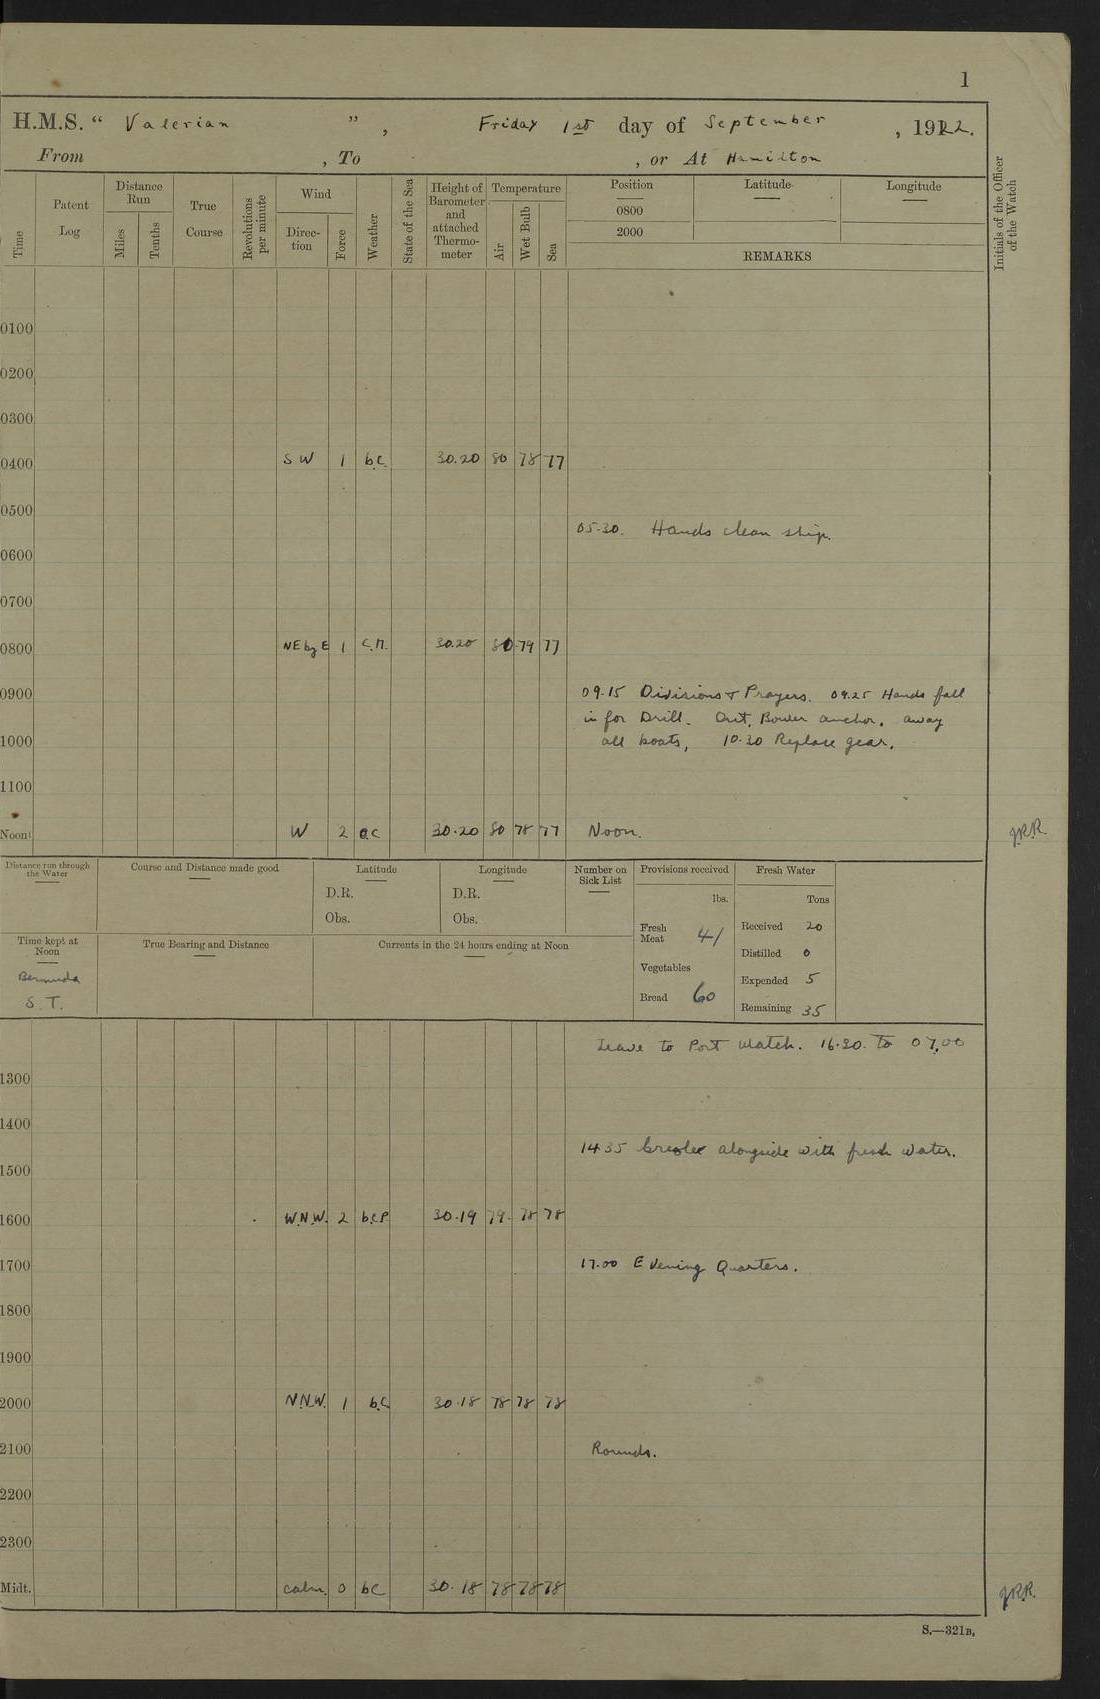 1
H.M.S. “ Valerian ” , Friday 1st day of September , 1922.
From , To , or At Hamilton
Time
Patent Log
Distance Run
Miles
Tenths
True Course
Revolutions per minute
Wind
Direc-tion
Force
Weather
State of the Sea
Height of Barometer and attached Thermo-meter
Temperature
Air
Wet Bulb
Sea
Position
0800
2000
Latitude
Longitude
REMARKS
Initials of the Officer of the Watch
0100
0200
0300
0400 S W 1 b.c. 30.20 80 78 77
0500
05.30. Hands clean ship.
0600
0700
0800 NE by E 1 30.20 80 79 77
0900 09.15 Divisions & Prayers. 09.25 Hands fall
in for Drill. Out Bower anchor, away
1000 all boats, 10.30 Replace gear.
1100
Noon W 2 30.20 80 78 77 Noon. J.R.R.
Distance run through the Water
Course and Distance made good
Latitude
D.R.
Obs.
Longitude
D.R.
Obs.
Number on Sick List
Provisions received
lbs.
Fresh Meat 41
Vegetables
Bread 60
Fresh Water
Tons
Received 20
Distilled 0
Expended 5
Remaining 35
Time kept at Noon
Bermuda
S. T.
True Bearing and Distance
Currents in the 24 hours ending at Noon
Leave to Port Watch. 16.30. to 07.00
1300
1400
14.35 Creole alongside with fresh water.
1500
1600 W.N.W. 2 b.c.p. 30.19 79 78 78
1700 17.00 Evening Quarters.
1800
1900
2000 N.N.W. 1 b.c. 30.18 78 78 78
2100 Rounds.
2200
2300
Midt. calm. 0 bc 30.18 78 78 78 J.R.R.
S.—321B.